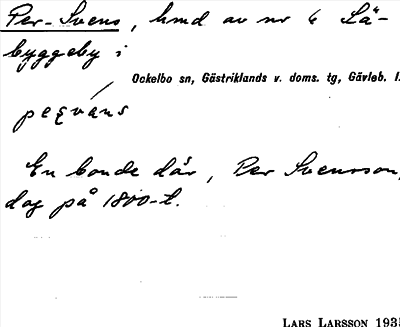 Per-Svens, hmd av nr 6 Lå-
byggeby i
Ockelbo sn, Gästriklands v. doms. tg, Gävleb. l.
pęʀvàns
En bonde där, Per Svensson,
dog på 1800-t.
LARS LARSSON 1935